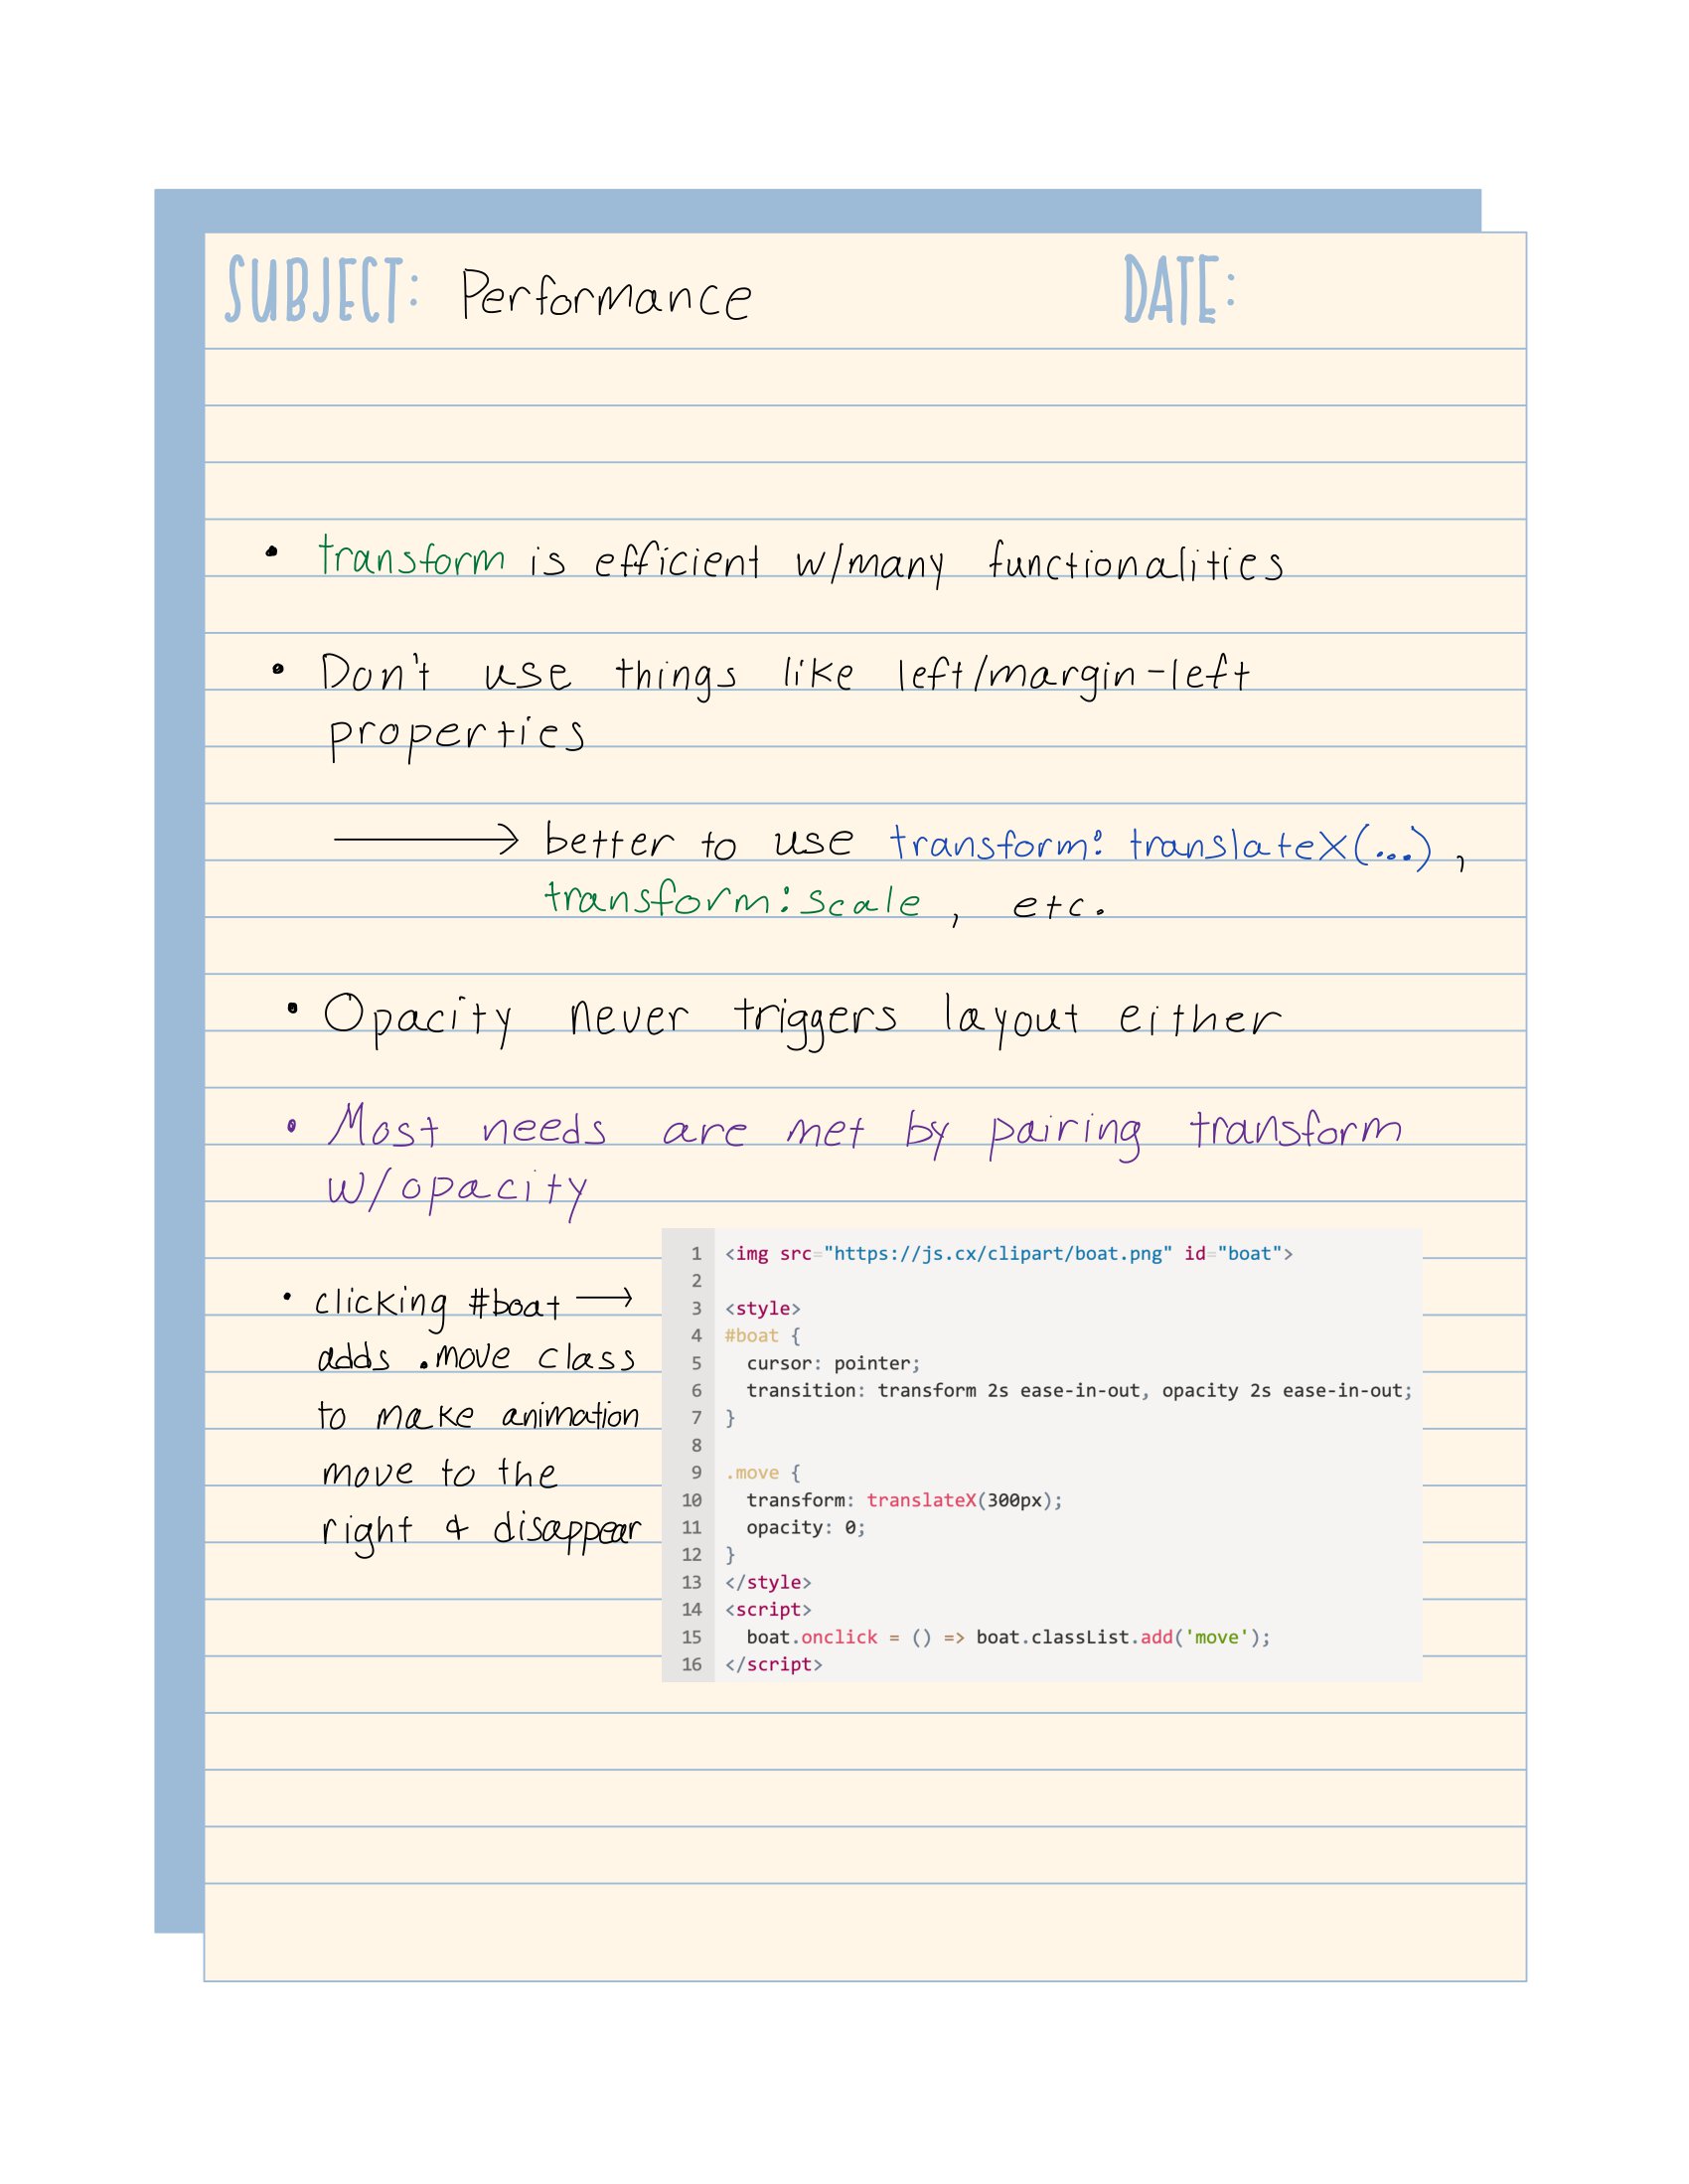 SUBJECT: Performance DATE:
• transform is efficient w/many functionalities
• Don't use things like left/margin-left
properties
⟶ better to use transform: translateX(...),
transform:scale, etc.
• Opacity never triggers layout either
• Most needs are met by pairing transform
w/opacity
• clicking #boat ⟶
adds .move class
to make animation
move to the
right & disappear
1 <img src="https://js.cx/clipart/boat.png" id="boat">
2
3 <style>
4 #boat {
5   cursor: pointer;
6   transition: transform 2s ease-in-out, opacity 2s ease-in-out;
7 }
8
9 .move {
10   transform: translateX(300px);
11   opacity: 0;
12 }
13 </style>
14 <script>
15   boat.onclick = () => boat.classList.add('move');
16 </script>